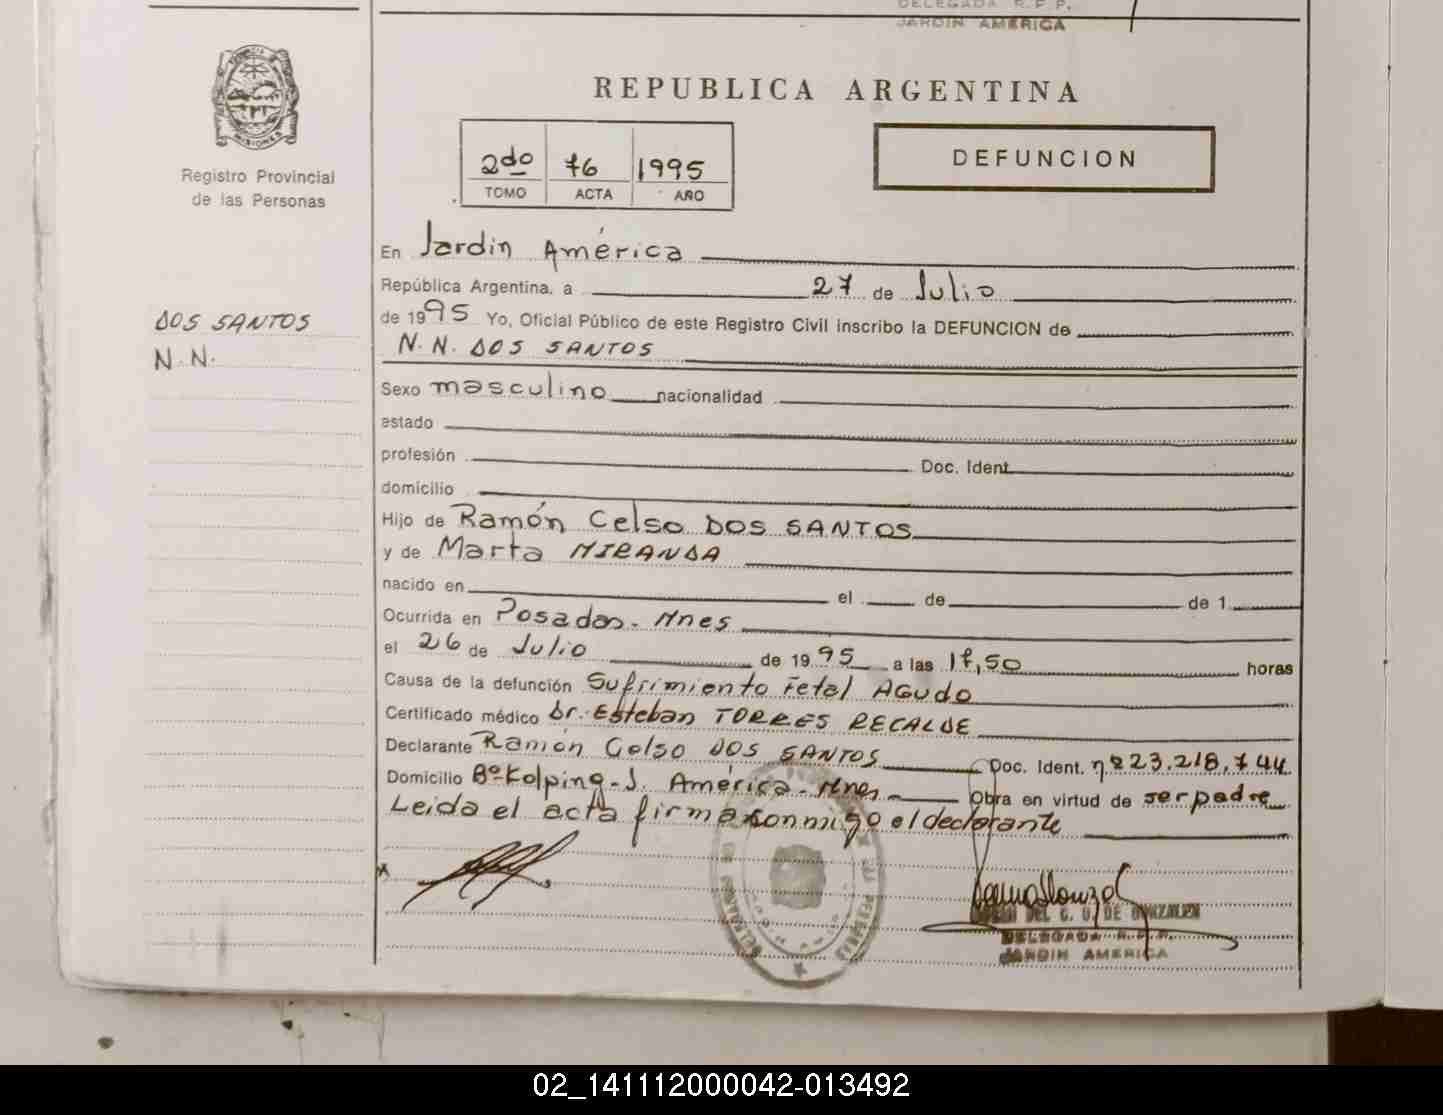 DELEGADA R.P.P.
JARDIN AMERICA
MISIONES
Registro Provincial
de las Personas
REPUBLICA ARGENTINA
2do 76 1995
TOMO ACTA AÑO
DEFUNCION
DOS SANTOS
N.N.
En Jardin América
República Argentina, a 27 de Julio
de 1995 Yo, Oficial Público de este Registro Civil inscribo la DEFUNCION de
N.N. DOS SANTOS
Sexo masculino nacionalidad
estado
profesión Doc. Ident.
domicilio
Hijo de Ramón Celso DOS SANTOS
y de Marta MIRANDA
nacido en el de de 1
Ocurrida en Posadas - Mnes
el 26 de Julio de 1995 a las 17,50 horas
Causa de la defunción Sufrimiento Fetal AGudo
Certificado médico Dr. Esteban TORRES RECALDE
Declarante Ramón Celso DOS SANTOS Doc. Ident. nº 23.218.744
Domicilio Bº Kolping - J. América - Mnes Obra en virtud de ser padre
Leida el acta firma conmigo el declarante
DEL C. G. DE GONZALEZ
DELEGADA R.P.P.
JARDIN AMERICA
02_141112000042-013492